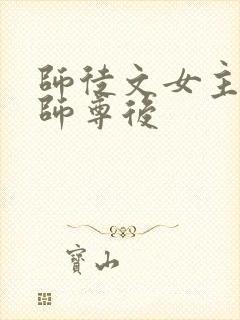 師徒文女主
師尊後
寶山